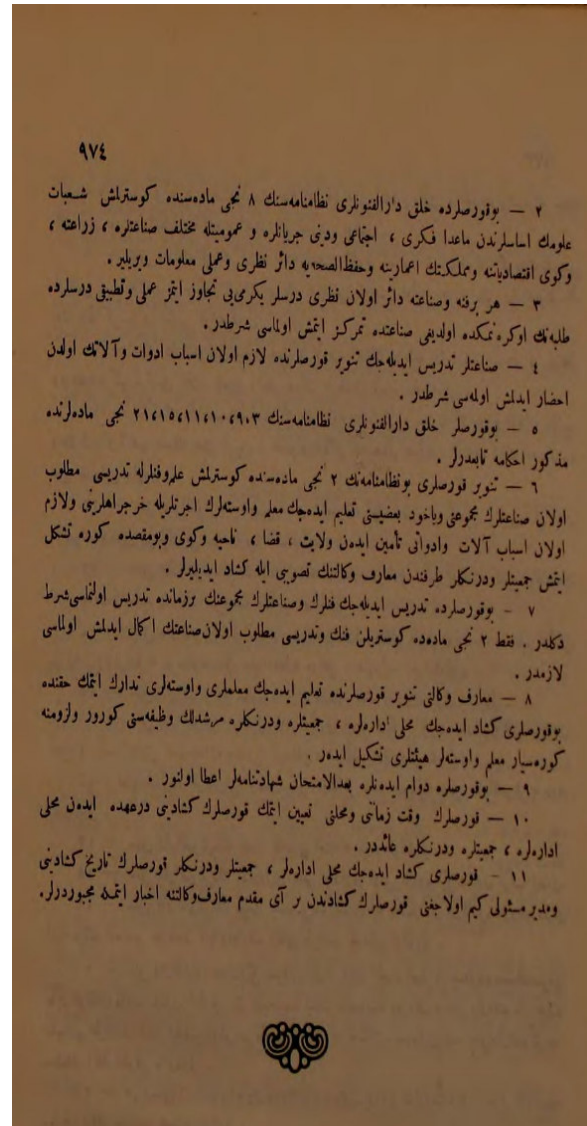 ٩٧٤
٢ — بوقورصلرده خلق دارالفنونلرى نظامنامه‌سنك ٨ نجى ماده‌سنده كوسترلمش شعبات
علومك اساسلرندن ماعدا فكرى ، اجتماعى ودينى جريانلره و عموميتله مختلف صناعتلره ، زراعته ،
وكوى اقتصادياتنه ومملكتك اعمارينه وحفظ‌الصحه‌يه دائر نظرى وعملى معلومات ويريلير .
٣ — هر برفنه وصناعته دائر اولان نظرى درسلر يكرمى‌يى تجاوز ايتمز عملى وتطبيقى درسلرده
طلبه‌نك اوكره‌نمكده اولديغى صناعتده تمركز ايتمش اولماسى شرطدر .
٤ — صناعتلر تدريس ايديله‌جك تنوير قورصلرنده لازم اولان اسباب ادوات وآلاتك اولدن
احضار ايدلمش اولمه‌سى شرطدر .
٥ — بوقورصلر خلق دارالفنونلرى نظامنامه‌سنك ٢١،١٥،١١،١٠،٩،٣ نجى ماده‌لرنده
مذكور احكامه تابعدرلر .
٦ — تنوير قورصلرى بونظامنامه‌نك ٢ نجى ماده‌سنده كوسترلمش علم‌وفنلرله تدريسى مطلوب
اولان صناعتلرك مجموعنى وياخود بعضيسنى تعليم ايده‌جك معلم واوسته‌لرك اجرتلريله خرجراهلرينى ولازم
اولان اسباب آلات وادواتى تأمين ايده‌ن ولايت ، قضا ، ناحيه وكوى وبومقصده كوره تشكل
ايتمش جمعيتلر ودرنكلر طرفندن معارف وكالتنك تصويبى ايله كشاد ايديليرلر .
٧ – بوقورصلرده تدريس ايديله‌جك فنلرك وصناعتلرك مجموعنك برزمانده تدريس اولنماسى شرط
دكلدر . فقط ٢ نجى ماده‌ده كوستريلن فنك وتدريسى مطلوب اولان صناعتك اكمال ايدلمش اولماسى
لازمدر .
٨ — معارف وكالتى تنوير قورصلرنده تعليم ايده‌جك معلملرى واوسته‌لرى تدارك ايتمك حقنده
بوقورصلرى كشاد ايده‌جك محلى اداره‌لره ، جمعيتلره ودرنكلره مرشدلك وظيفه‌سنى كورور ولزومنه
كوره‌سيار معلم واوسته‌لر هيئتلرى تشكيل ايدەر .
٩ — بوقورصلره دوام ايده‌نلره بعدالامتحان شهادتنامه‌لر اعطا اولنور .
١٠ — قورصلرك وقت زمانى ومحلنى تعيين ايتمك قورصلرك كشادينى درعهده ايده‌ن محلى
اداره‌لره ، جمعيتلره ودرنكلره عائددر .
١١ – قورصلرى كشاد ايده‌جك محلى اداره‌لر ، جمعيتلر ودرنكلر قورصلرك تاريخ كشادينى
ومدير مسئولى كيم اولاجغنى قورصلرك كشادندن بر آى مقدم معارف‌وكالتنه اخبار ايتمكه مجبوردرلر.